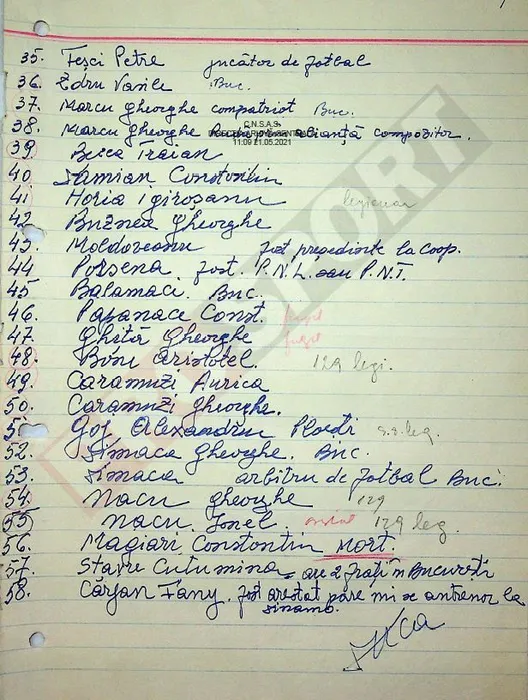 35. Fești Petre jucător de fotbal
36. Zdru Vasile Buc.
37. Marcu Gheorghe compatriot Buc.
C.N.S.A.S.
38. Marcu Gheorghe compozitor.
11:09 21.05.2021
39. Beica Traian
40. Samian Constantin
41. Horia Igiroșanu legionar
42 Buznea Gheorghe
43. Moldoveanu fost președinte la Coop.
44 Porsena fost P.N.L. sau P.N.T.
45 Balamaci. Buc.
46. Papanace Const. fugit
47. Ghită Gheorghe fugit
48. Boni Aristotel. 129 legi.
49. Caramuzi Aurica
50. Caramuzi Gheorghe.
51 Gog Alexandru Ploești s.s. leg.
52. Simaca Gheorghe. Buc.
53. Simaca arbitru de fotbal Buc.
54. Nacu Gheorghe 129
55. Nacu Ionel. 129 leg.
56. Magiari Constantin MORT.
57. Stavre Cutumina are 2 frați în București
58. Cârjan Fany. fost arestat pare mi se antrenor la
dinamo.
SPORT